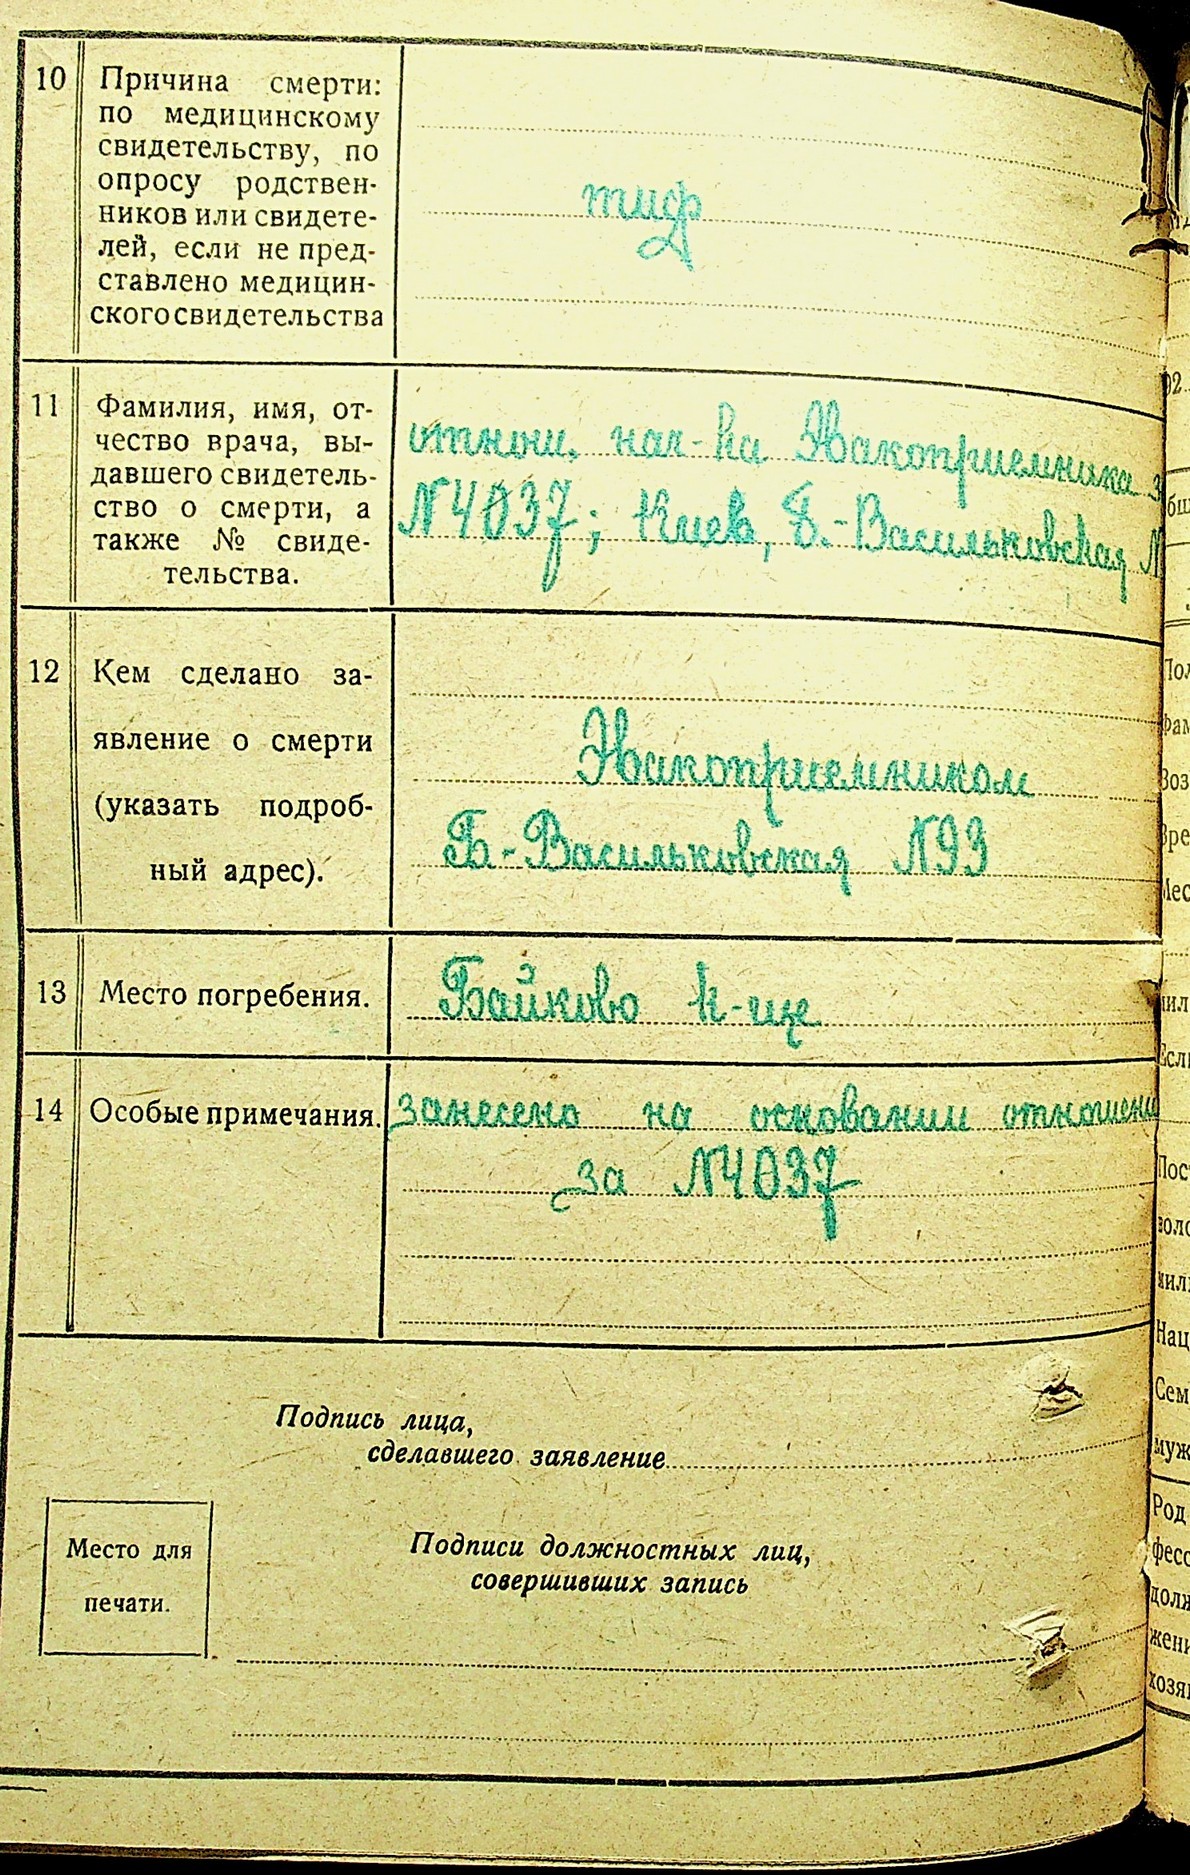 10 Причина смерти:
по медицинскому
свидетельству, по
опросу родствен-
ников или свидете-
лей, если не пред-
ставлено медицин-
ского свидетельства
тиф
11 Фамилия, имя, от-
чество врача, вы-
давшего свидетель-
ство о смерти, а
также № свиде-
тельства.
отнош. нач-ка Эвакоприемника з
№4037; Киев, Б.-Васильковская №
12 Кем сделано за-
явление о смерти
(указать подроб-
ный адрес).
Эвакоприемником
Б-Васильковская №93
13 Место погребения.
Байково к-ще
14 Особые примечания.
занесено на основании отношени
за №4037
Подпись лица,
сделавшего заявление
Место для
печати.
Подписи должностных лиц,
совершивших запись